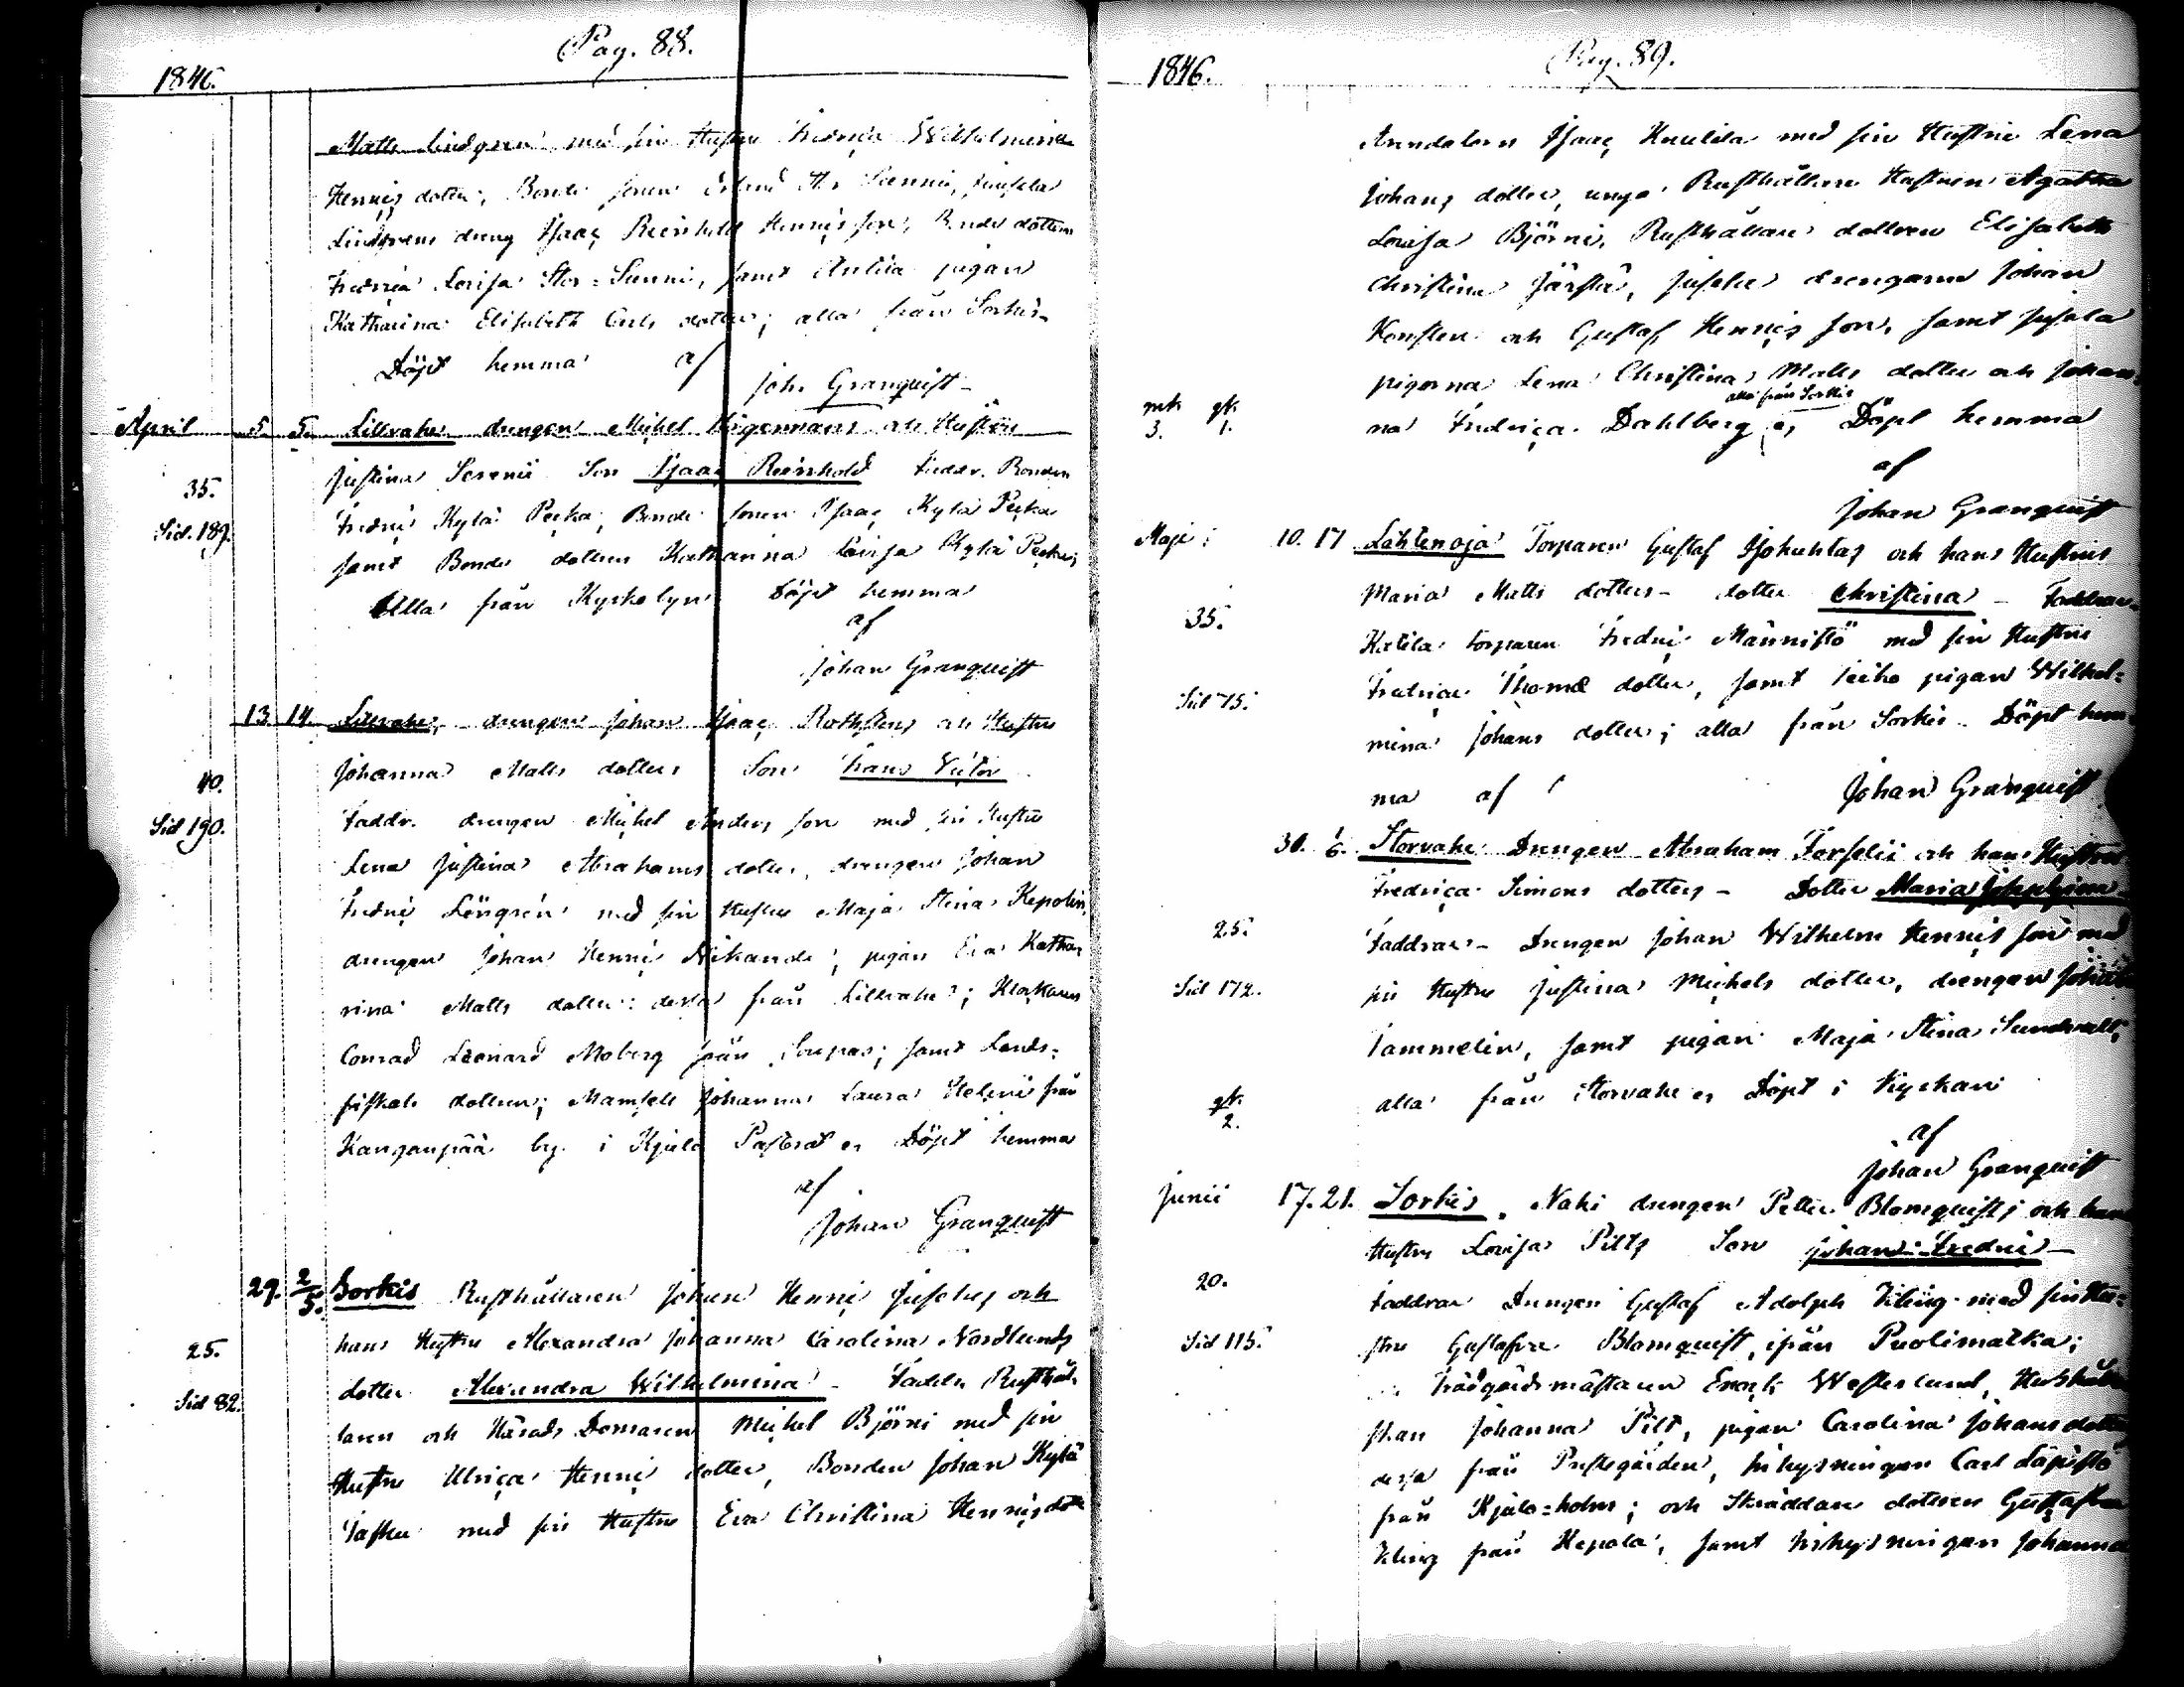 Pag. 88.
1846.
Matts Lindgren med sin Hustru Fredrica Wilhelmina
Henrics dotter, Bonde sonen Erland St. Sunni, Jusela
Lindgrens dreng Isaac Reinhold Henrics son, Bonde dottern
Fredrica Lovisa Stor-Sunni, samt Anttila pigan
Katharina Elisabeth Carls dotter; alla från Sorkis.
Döpt hemma af
Joh. Granquist
April 5. 5. Lillvahe drengen Michel Hägermans och Hustru
Justina Serenii Son Isaac Reinhold Faddr. Bonden
35.
Fredric Kylä Pecka, Bonde sonen Isaac Kylä Pecka
Sid. 189.
samt Bonde dottern Katharina Lovisa Kylä Pecka,
Alla från Kyrkobyn Döpt hemma
af
Johan Granquist
13. 14. Lillvahe, drengen Johan Isaac Rothstens och Hustru
Johanna Matts dotters Son Frans Victor
40.
Faddr. drengen Michel Anders son med sin Hustru
Sid 190.
Lena Justina Abrahams dotter, drengen Johan
Fredric Löngren med sin Hustru Maja Stina Kepolin,
drengen Johan Henric Nikander, pigan Eva Katha
rina Matts dotter: dessa från Lillvahe; Klockaren
Conrad Leonard Moberg från; samt Lands-
fiskals dottern; Mamsell Johanna Laura Helenii från
Kanganpää by i Kjulo Pastorat es Döpt hemma
af
Johan Granquist
29. 2/5. Sorkis Rusthållaren Johan Henric Juselii och
hans Hustru Alexandra Johanna Carolina Nordlunds
25.
dotter Alexandra Wilhelmina - Faddr. Rusthål-
Sid 82.
laren och Härads Domaren Michel Björni med sin
Hustru Ulrica Henric dotter, Bonden Johan Kylä
med sin Hustru Eva Christina Henrics dott
Pag. 89.
1846.
Arendatorn Isaac Knuutila med sin Hustru Lena
Johans dotter, unga Rusthållare Hustrun Agatha
Lovisa Björni, Rusthållare dottren Elisabeth
Christina Järstä, Jusela drengarna Johan
Konsten och Gustaf Henrics son, samt Jusela
pigorna Lena Christina Matts dotter och Johan-
alla från Sorkis
mk gk
3. 1.
na Fredrica Dahlberg es Döpt hemma
af
Johan Granquist
Maji 10. 17 Lähtenoja Torparen Gustaf Isokuhtas och hans Hustrus
Maria Matts dotters - dotter Christina - Faddrar.
35.
Katila torparen Fredric Männistö med sin Hustru
Fredrica Thomæ dotter, samt pigan Wilhel-
Sid 75.
mina Johans dotter; alla från Sorkis. Döpt hem
ma af Johan Granquist
30. 1/6. Storvahe Drengen Abraham Forselii och hans Hustrus
Fredrica Simons dotters - Dotter Maria Josephina -
25.
Faddrar - Drengen Johan Wilhelm Henrics son med
Sid 172.
sin Hustru Justina Michels dotter, drengen Johan
Tammelin, samt pigan Maja Stina Sundvall,
alla från Storvahe es Döpt i Kyrkan
gk.
2.
af
Johan Granquist
Junii 17. 21. Sorkis. Naki drengen Petter Blomquists och hans
Hustru Lovisa Piltz Son Johan Fredric -
20.
Faddrar Drengen Gustaf Adolph Viking med sin Hu-
Sid 115.
stru Gustafva Blomquist, ifrån Puolimatka;
Trädgårdsmästaren Enock Westerlund, Hushåll
skan Johanna Pilt, pigan Carolina Johans dotter
dessa från Prestgården, Inhysningen Carl Läpistö
från Kjulo-holm; och Skräddare dottren Gustafva
Viking från Kepola, samt Inhysningen Johanna